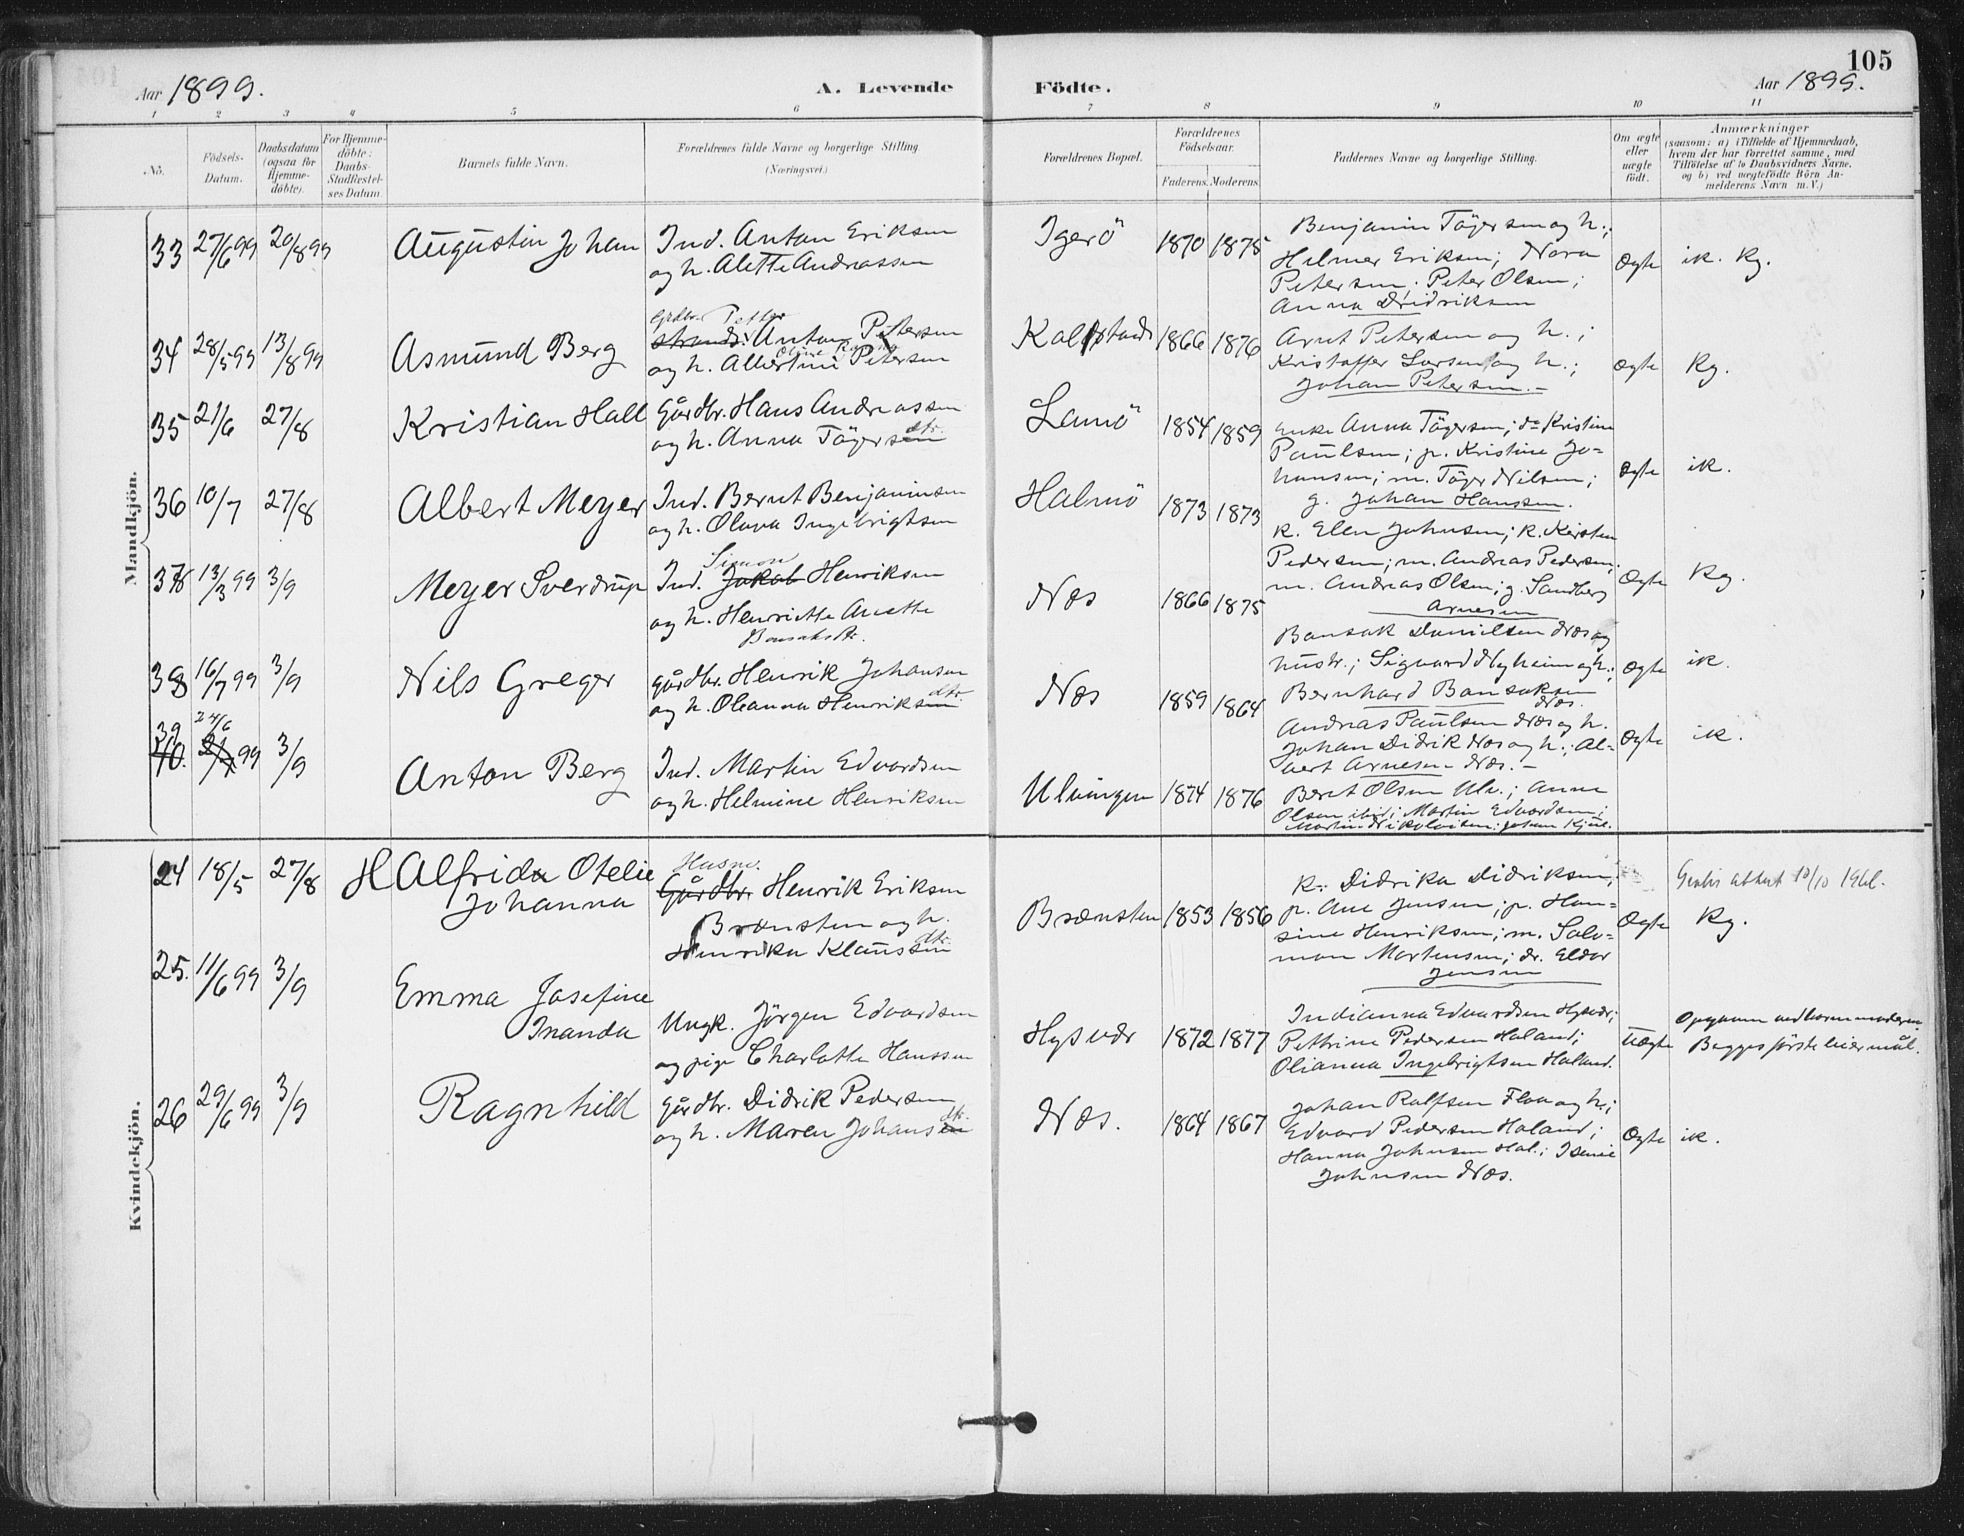 105
Aar 1899.
A. Levende Födte.
Aar 1899.
1 2 3 4 5 6 7 8 9 10 11
No. Födsels-Datum. Daabsdatum (ogsaa for Hjemme-döbte). For Hjemme-döbte: Daabs-Stadfæstel-ses Datum. Barnets fulde Navn. Forældrenes fulde Navne og borgerlige Stilling. (Næringsvei.) Forældrenes Bopæl. Forældrenes Födselsaar. Faderens. Moderens. Faddernes Navne og borgerlige Stilling. Om ægte eller uægte födt. Anmærkninger
(saasom: a) i Tilfælde af Hjemmedaab,
hvem der har forrettet samme, med
Tilföielse af to Daabsvidners Navne.
og b) ved uægtefödte Börn An-
melderens Navn m. V.)
Mandkjön.
33 27/6 99 20/8 99 Augustin Johan Ind. Anton Eriksen
og h. Alette Andreassen
Igerö 1870 1875
Benjamin Tögersen og h.;
Helmer Eriksen; Nora
Petersen; Peter Olsen;
Anna Didriksen
Ægte ik. Kg.
34 28/5 99 13/8 99 Asmund Berg
Grdbr. Petter
Anton Petersen
og h. Albertine Petersen
1866 1876
Arnt Petersen og h.;
Kristoffer Larsen og h.;
Johan Petersen.-
Ægte Kg.
35 21/6 27/8 Kristian Hall Gårdbr. Hans Andreassen
og h. Anna Tögersen dtr.
Lamö 1854 1859
Enke Anna Tögersen; do Kristine
Paulsen; p. Kristine Jo-
hansen; m. Töger Nilsen;
g. Johan Hanssen.
Ægte ik.
36 10/7 27/8 Albert Meyer Ind. Bernt Benjaminsen
og h. Olava Ingebrigtsen
Halmö 1873 1873
k. Ellen Johnsen; k. Kersten
Pedersen; m. Andreas Pedersen;
m. Andreas Olsen; g. Sandberg
Arnesen
Ægte Kg.
37 13/3 99 3/9 Meyer Sverdrup
Simon
Ind. Jakob Henriksen
og h. Henriette Anette
Bonsaksdtr.
Næs 1866 1875
Bonsak Danielsen Næs og
hustr.; Sigvard Nyheim og h.;
Bernhard Bonsaksen
Næs.
Ægte ik.
38 16/7 99 3/9 Nils Greger Gårdbr. Henrik Johansen
og h. Oleanna Henriksen dtr.
Næs 1859 1864
Andreas Paulsen Næs og h.
Johan Didrik Næs og h.; Al-
bert Arnesen Næs.-
Ægte ik.
39
40. 24/6 99 3/9 Anton Berg Ind. Martin Edvardsen
og h. Helmine Henriksen
Ulvingen 1874 1876
Berit Olsen Ulv.; Anne
Olsen ibid; Martin Edvardsen;
Martin Nikolaisen; Johan Kjul.
Kvindekjön.
24 18/5 27/8 H Alfrida Otelie
Johanna
Husm.
Gårdbr. Henrik Eriksen
Brænsten og h.
Henrika Klaussen dtr.
Brænsten 1853 1856
k. Didrika Didriksen;
p. Ane Jensen; p. Han-
sine Henriksen; m. Salo-
mon Mortensen; dr. Eldor
Jensen
Ægte Gratis attest 10/10 1961.
Kg.
25. 11/6 99 3/9 Emma Josefine
Inanda
Ungk. Jörgen Edvardsen
og pige Charlotte Hanssen
Hysvær 1872 1877
Indianna Edvardsen Hysvær;
Petrine Pedersen Haland;
Olianna Ingebrigtsen Haland.
Uægte Opgiven ved barnemoderen.
Begges förste leiermål.
26 29/6 99 3/9 Ragnhild Gårdbr. Didrik Pedersen
og h. Maren Johansen dtr.
Næs. 1864 1867
Johan Rolfsen Floa og h.;
Edvard Pedersen Haland;
Hanna Johnsen Hal.;
Johnsen Næs.
Ægte ik.